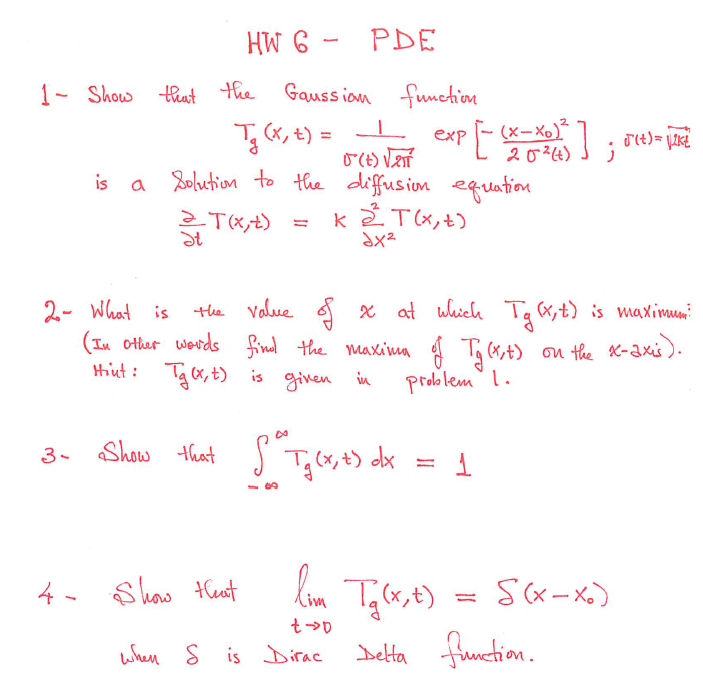 HW 6 - PDE
1- Show that the Gaussian function
T_g(x,t) = 1/(σ(t)√2π) exp[-(x-x₀)²/(2σ²(t))] ; σ(t)=√2kt
is a Solution to the diffusion equation
∂/∂t T(x,t) = k ∂²/∂x² T(x,t)
2- What is the value of x at which T_g(x,t) is maximum?
(In other words find the maxima of T_g(x,t) on the x-axis).
Hint: T_g(x,t) is given in problem 1.
3- Show that ∫_{-∞}^{∞} T_g(x,t) dx = 1
4- Show that lim_{t→0} T_g(x,t) = δ(x-x₀)
when δ is Dirac Delta function.